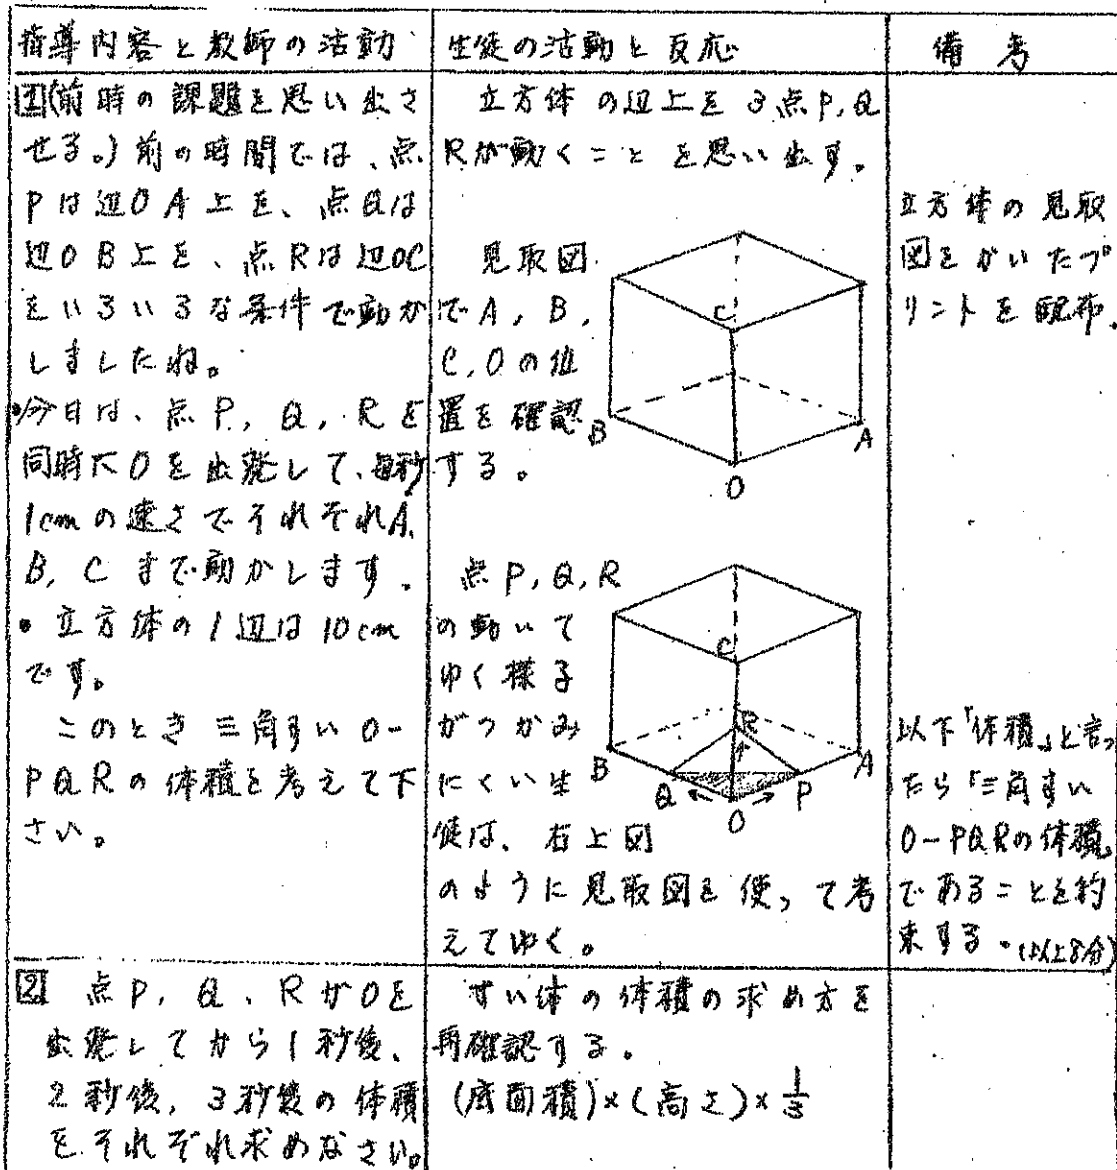 指導内容と教師の活動
生徒の活動と反応
備考
1(前時の課題を思い出さ
せる。)前の時間では、点
Pは辺OA上を、点Qは
辺OB上を、点Rは辺OC
をいろいろな条件で動か
しましたね。
・今日は、点P, Q, Rを
同時にOを出発して、毎秒
1cmの速さでそれぞれA,
B, Cまで動かします。
・立方体の1辺は10cm
です。
このとき三角すいO-
PQRの体積を考えて下
さい。
立方体の辺上を3点P,Q
Rが動くことを思い出す。
見取図
でA, B,
C,Oの位
置を確認
する。
C
B
A
O
点P,Q,R
の動いて
ゆく様子
がつかみ
にくい生
徒は、右上図
のように見取図を使って考
えてゆく。
C
R
B
A
Q
P
O
立方体の見取
図をかいたプ
リントを配布.
以下「体積」と言っ
たら「三角すい
O-PQRの体積」
であることを約
束する。(以上8分)
2 点P, Q, RがOを
出発してから1秒後、
2秒後, 3秒後の体積
をそれぞれ求めなさい。
すい体の体積の求め方を
再確認する。
(底面積)×(高さ)×1/3